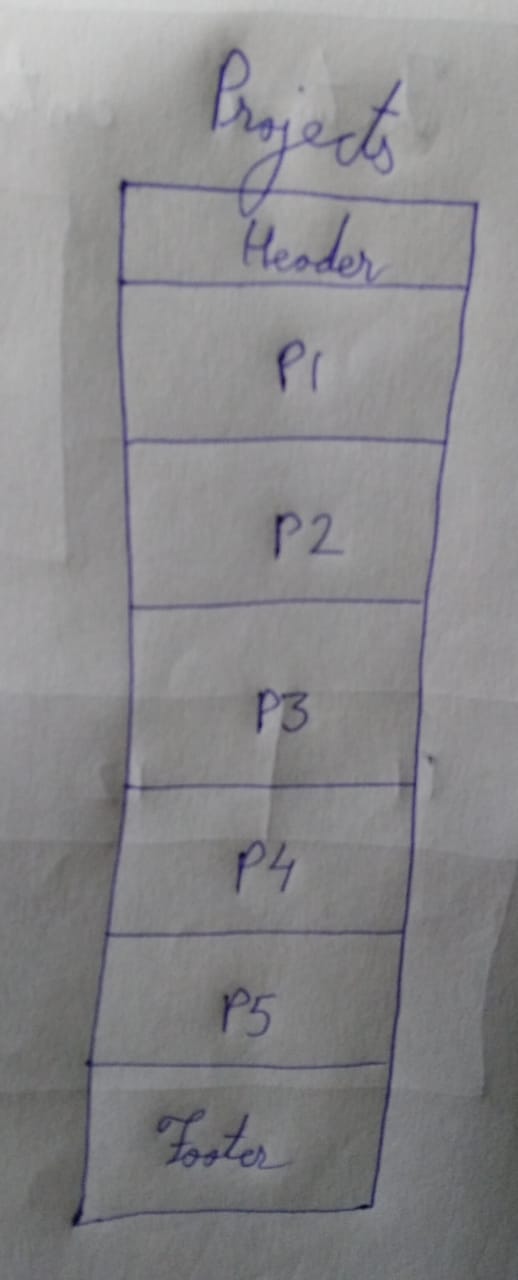 Projects
Header
P1
P2
P3
P4
P5
Footer